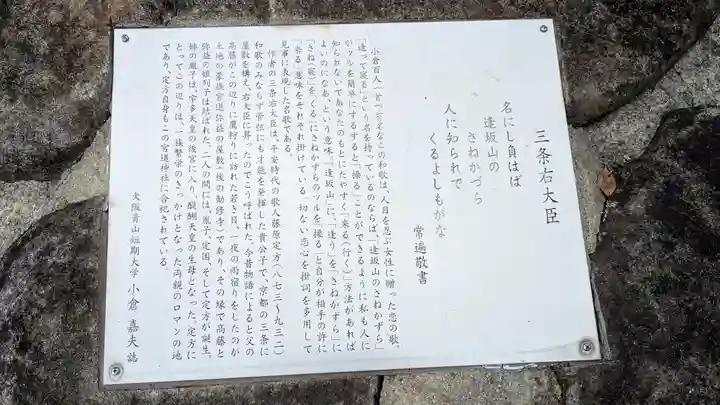 三条右大臣
名にし負はば
逢坂山の
さねかづら
人に知られで
くるよしもがな
常遍敬書
小倉百人一首で有名なこの和歌は、人目を忍ぶ女性に贈った恋の歌。
「逢って寝る」という名を持っているのならば、「逢坂山のさねかずら」
がツルを簡単にするすると「操る」ことができるように私も人に
知られないであなたのもとにたやすく「来る（行く）」方法があれば
よいのになあ、という意味。「逢坂山」に、「逢う」を「さねかずら」に
「さね（寝）」を「くる」にさねかずらのツルを「操る」と自分が相手の許に
「来る」意味をそれぞれ掛けている。切ない恋心を掛詞を多用して
見事に表現した名歌である。
作者の三条右大臣は、平安時代の歌人藤原定方（八七三～九三二）
和歌のみならず管弦にも才能を発揮した貴公子で、京都の三条に
屋敷を構え、右大臣に昇ったのでこう呼ばれた。今昔物語によると父の
高藤がこの辺りに鷹狩りに訪れた若き日、一夜の雨宿りをしたのが
土地の豪族宮道弥益の屋敷（後の勧修寺）であり、その縁で高藤と
弥益の娘列子は結ばれた。二人の間には、胤子、定国、そして定方が誕生。
姉の胤子は、宇多天皇の後宮に入り、醍醐天皇の生母となった。定方に
とってこの辺りは、一族繁栄のきっかけとなった両親のロマンの地
であり、定方自身もこの宮道神社に合祀されている。
大阪青山短期大学 小倉嘉夫誌